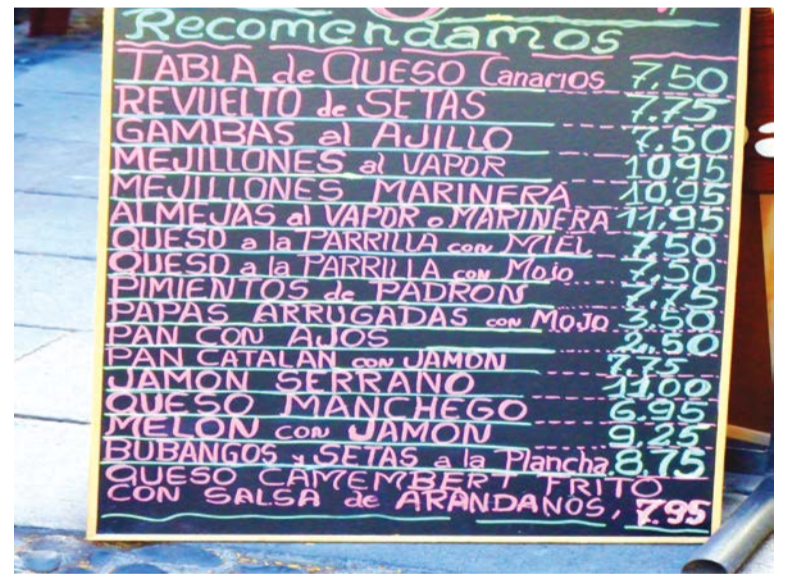 Recomendamos
TABLA de QUESO Canarios 7,50
REVUELTO de SETAS 7.75
GAMBAS al AJILLO 7,50
MEJILLONES al VAPOR 10,95
MEJILLONES MARINERA 10,95
ALMEJAS al VAPOR o MARINERA 11,95
QUESO a la PARRILLA con MIEL 7,50
QUESO a la PARRILLA con Mojo 7,50
PIMIENTOS de PADRON 7,75
PAPAS ARRUGADAS con MOJO 3,50
PAN CON AJOS 2,50
PAN CATALAN con JAMON 7.75
JAMON SERRANO 11,00
QUESO MANCHEGO 6.95
MELON CON JAMON 9,25
BUBANGOS y SETAS a la Plancha 8,75
QUESO CAMEMBERT FRITO
CON SALSA de ARANDANOS, 7.95